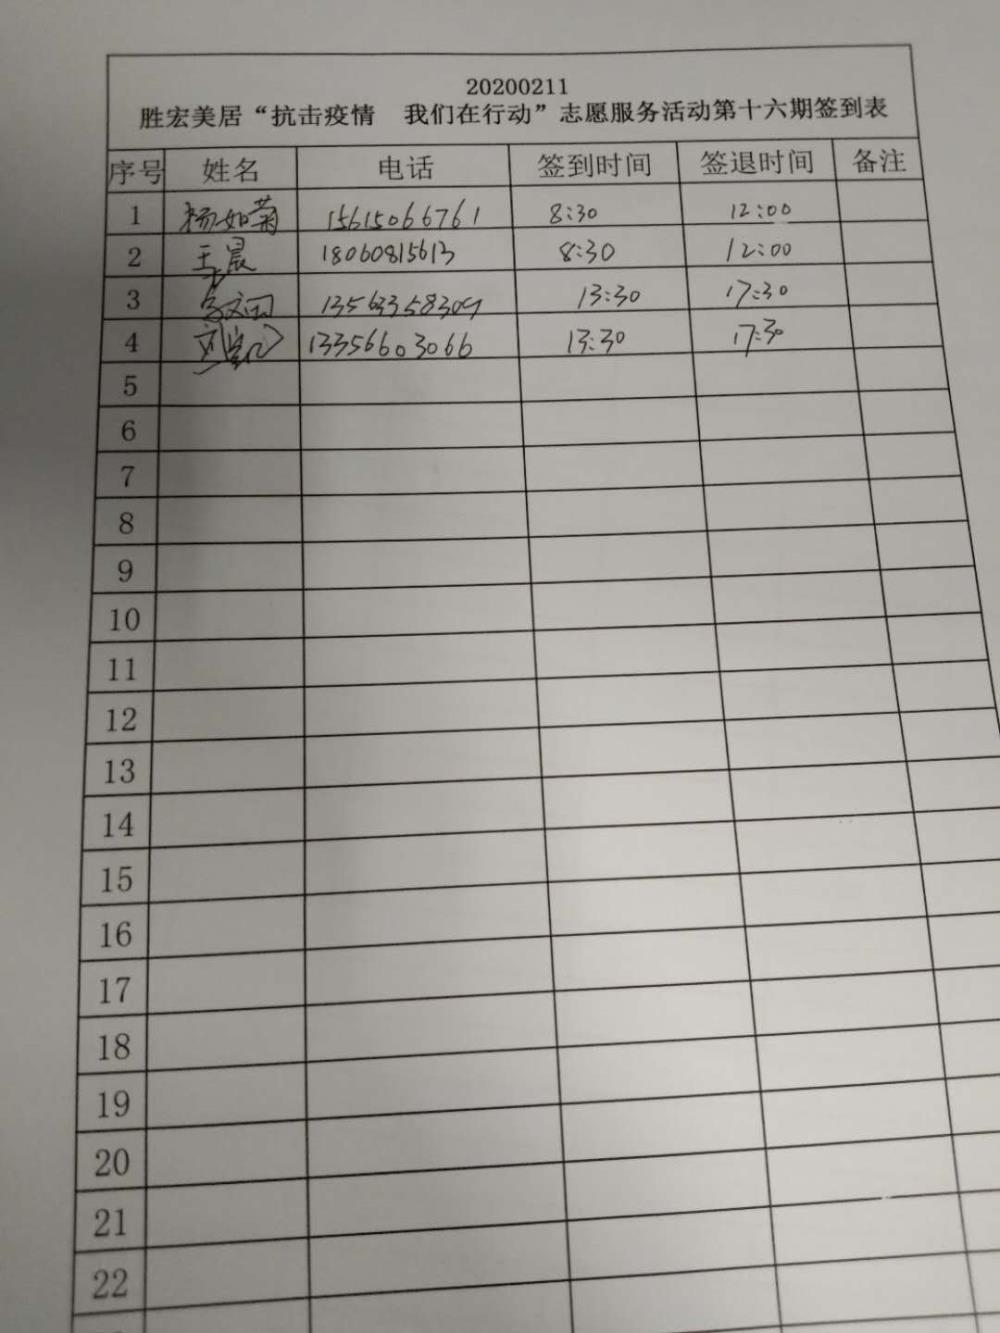 20200211
胜宏美居“抗击疫情 我们在行动”志愿服务活动第十六期签到表
序号 姓名 电话 签到时间 签退时间 备注
1 杨如菊 15615066761 8:30 12:00
2 王晨 18060815613 8:30 12:00
3 13563358309 13:30 17:30
4 13356603066 13:30 17:30
5
6
7
8
9
10
11
12
13
14
15
16
17
18
19
20
21
22